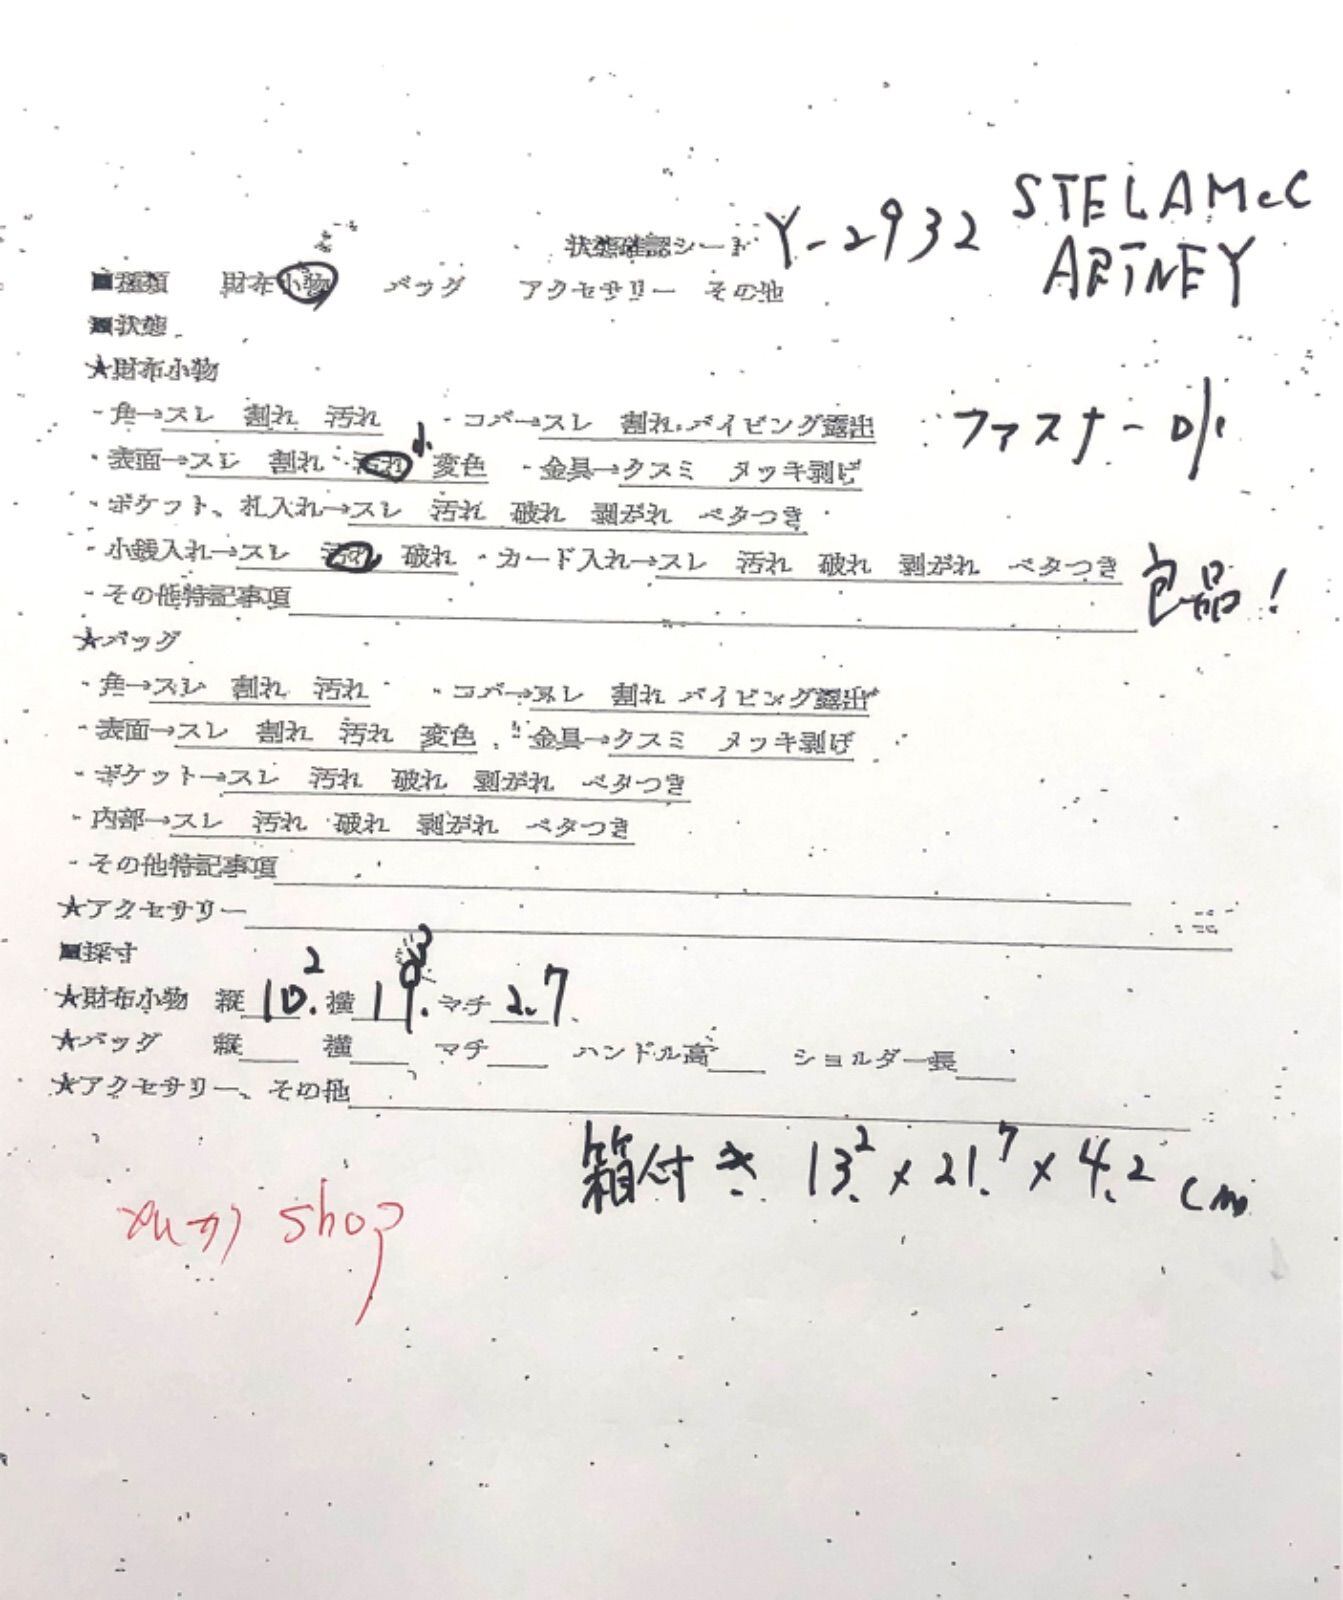 STELAMcC
状態確認シート Y-2932
ARTNEY
■種類 財布小物 バッグ アクセサリー その他
■状態
★財布小物
・角→スレ 割れ 汚れ ・コバ→スレ 割れ パイピング露出
ファスナー
小
・表面→スレ 割れ 汚れ 変色 ・金具→クスミ メッキ剥げ
・ポケット、札入れ→スレ 汚れ 破れ 剥がれ ベタつき
・小銭入れ→スレ 汚れ 破れ ・カード入れ→スレ 汚れ 破れ 剥がれ ベタつき
良品!
・その他特記事項
★バッグ
・角→スレ 割れ 汚れ ・コバ→スレ 割れ パイピング露出
・表面→スレ 割れ 汚れ 変色 ・金具→クスミ メッキ剥げ
・ポケット→スレ 汚れ 破れ 剥がれ ベタつき
・内部→スレ 汚れ 破れ 剥がれ ベタつき
・その他特記事項
★アクセサリー
■採寸
★財布小物 縦10.2 横19.3 マチ2.7
★バッグ 縦 横 マチ ハンドル高 ショルダー長
★アクセサリー、その他
箱付き 13.2×21.7×4.2cm
shop